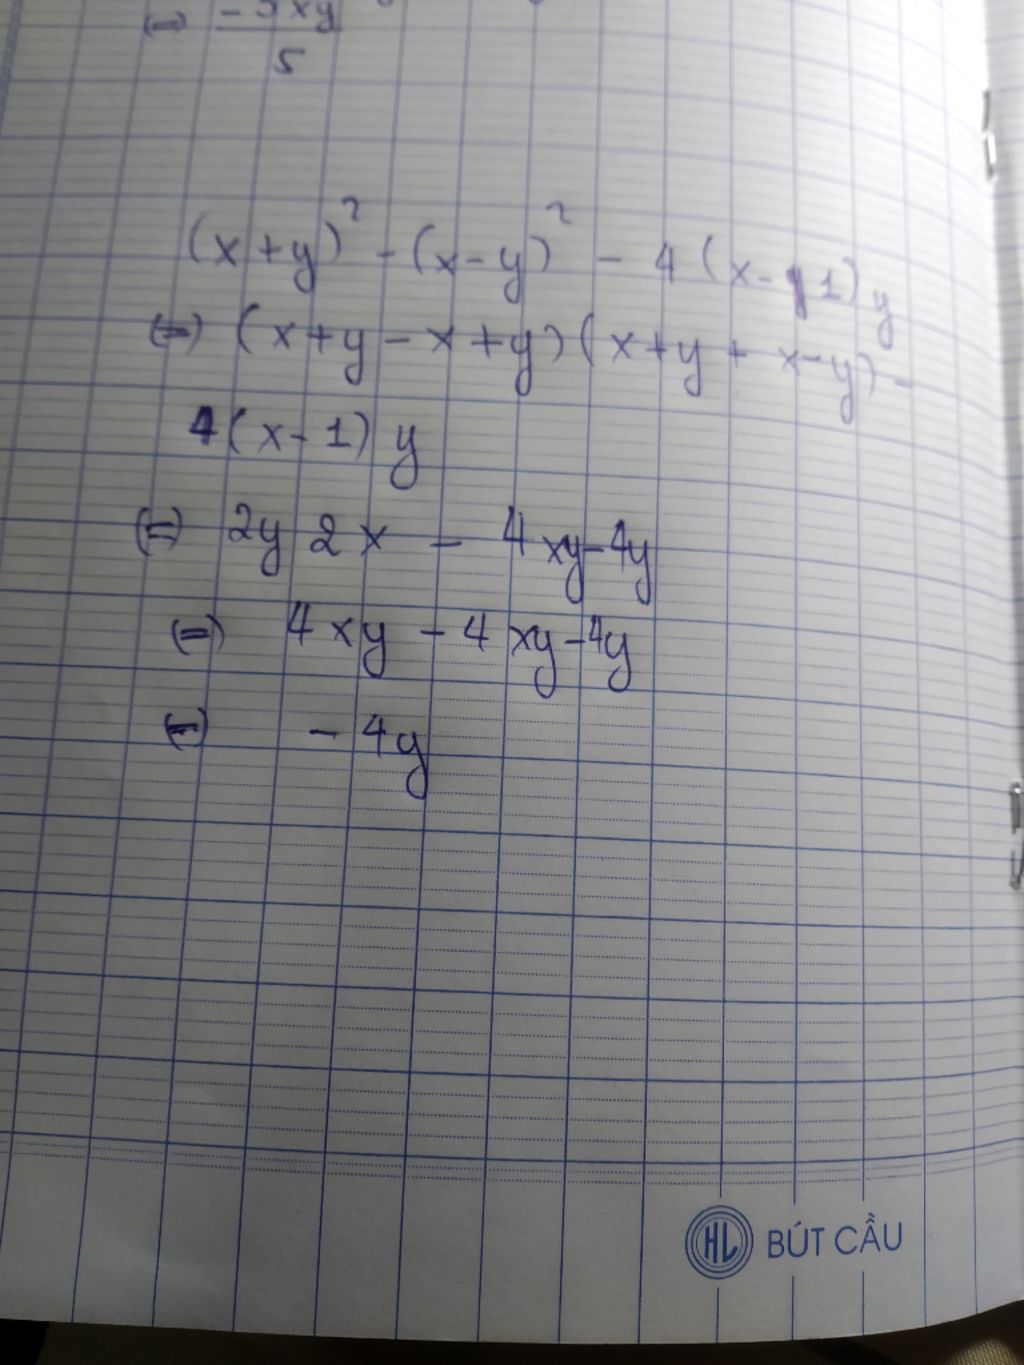 (=) -5xy
5
(x+y)² - (x-y)² - 4(x-1)y
(=) (x+y-x+y)(x+y+x-y)-
4(x-1)y
(=) 2y 2x - 4xy-4y
(=) 4xy - 4xy-4y
(=) - 4y
HL BÚT CẦU